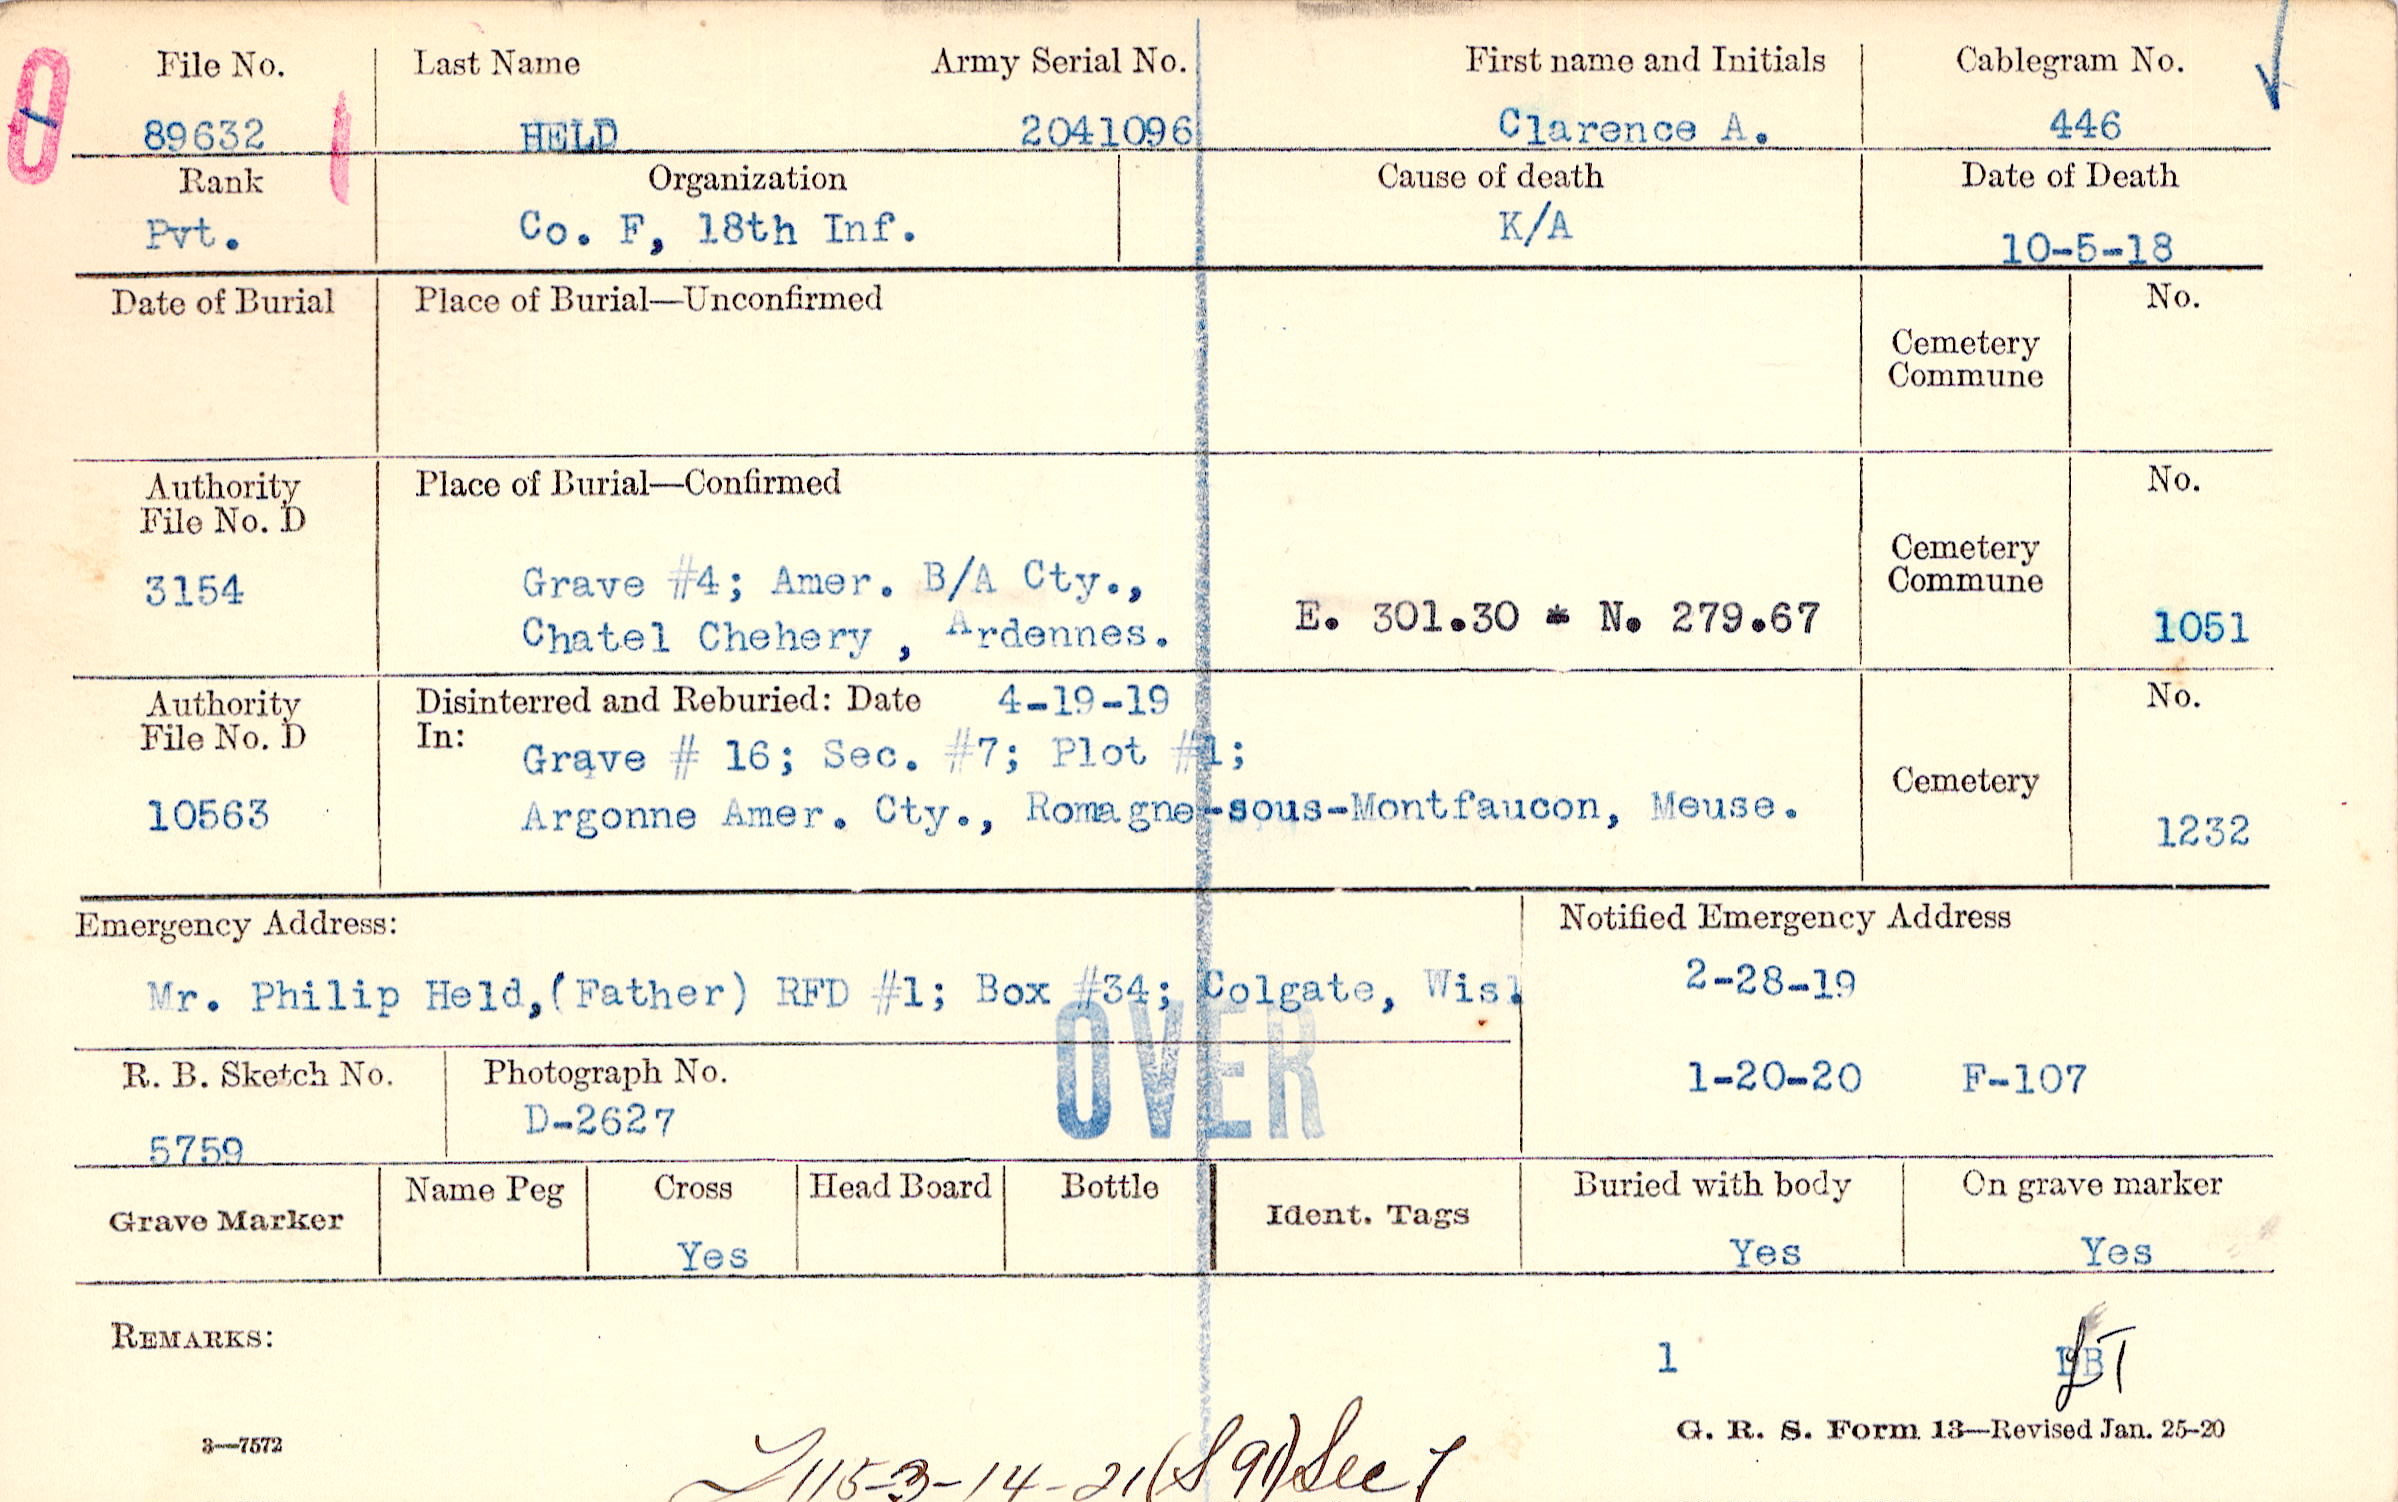 File No. Last Name Army Serial No. First name and Initials Cablegram No.
89632 HELD 2041096 Clarence A. 446
Rank Organization Cause of death Date of Death
Pvt. Co. F, 18th Inf. K/A 10-5-18
Date of Burial Place of Burial—Unconfirmed No.
Cemetery
Commune
Authority Place of Burial—Confirmed No.
File No. D
Cemetery
Commune
3154 Grave #4; Amer. B/A Cty.,
Chatel Chehery , Ardennes. E. 301.30 * N. 279.67 1051
Authority Disinterred and Reburied: Date 4-19-19 No.
File No. D In:
Grave # 16; Sec. #7; Plot #1;
Cemetery
10563 Argonne Amer. Cty., Romagne-sous-Montfaucon, Meuse. 1232
Emergency Address: Notified Emergency Address
Mr. Philip Held,(Father) RFD #1; Box #34; Colgate, Wis. 2-28-19
OVER
R. B. Sketch No. Photograph No. 1-20-20 F-107
5759 D-2627
Grave Marker Name Peg Cross Head Board Bottle Ident. Tags Buried with body On grave marker
Yes Yes Yes
REMARKS: 1
3—7572 G. R. S. Form 13—Revised Jan. 25-20
3-14-21 (S 91) Sec 7